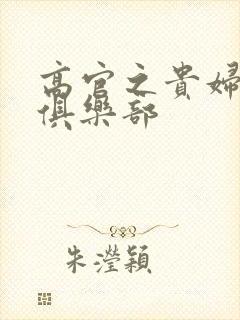 高官之貴婦
俱樂部
朱瀅穎